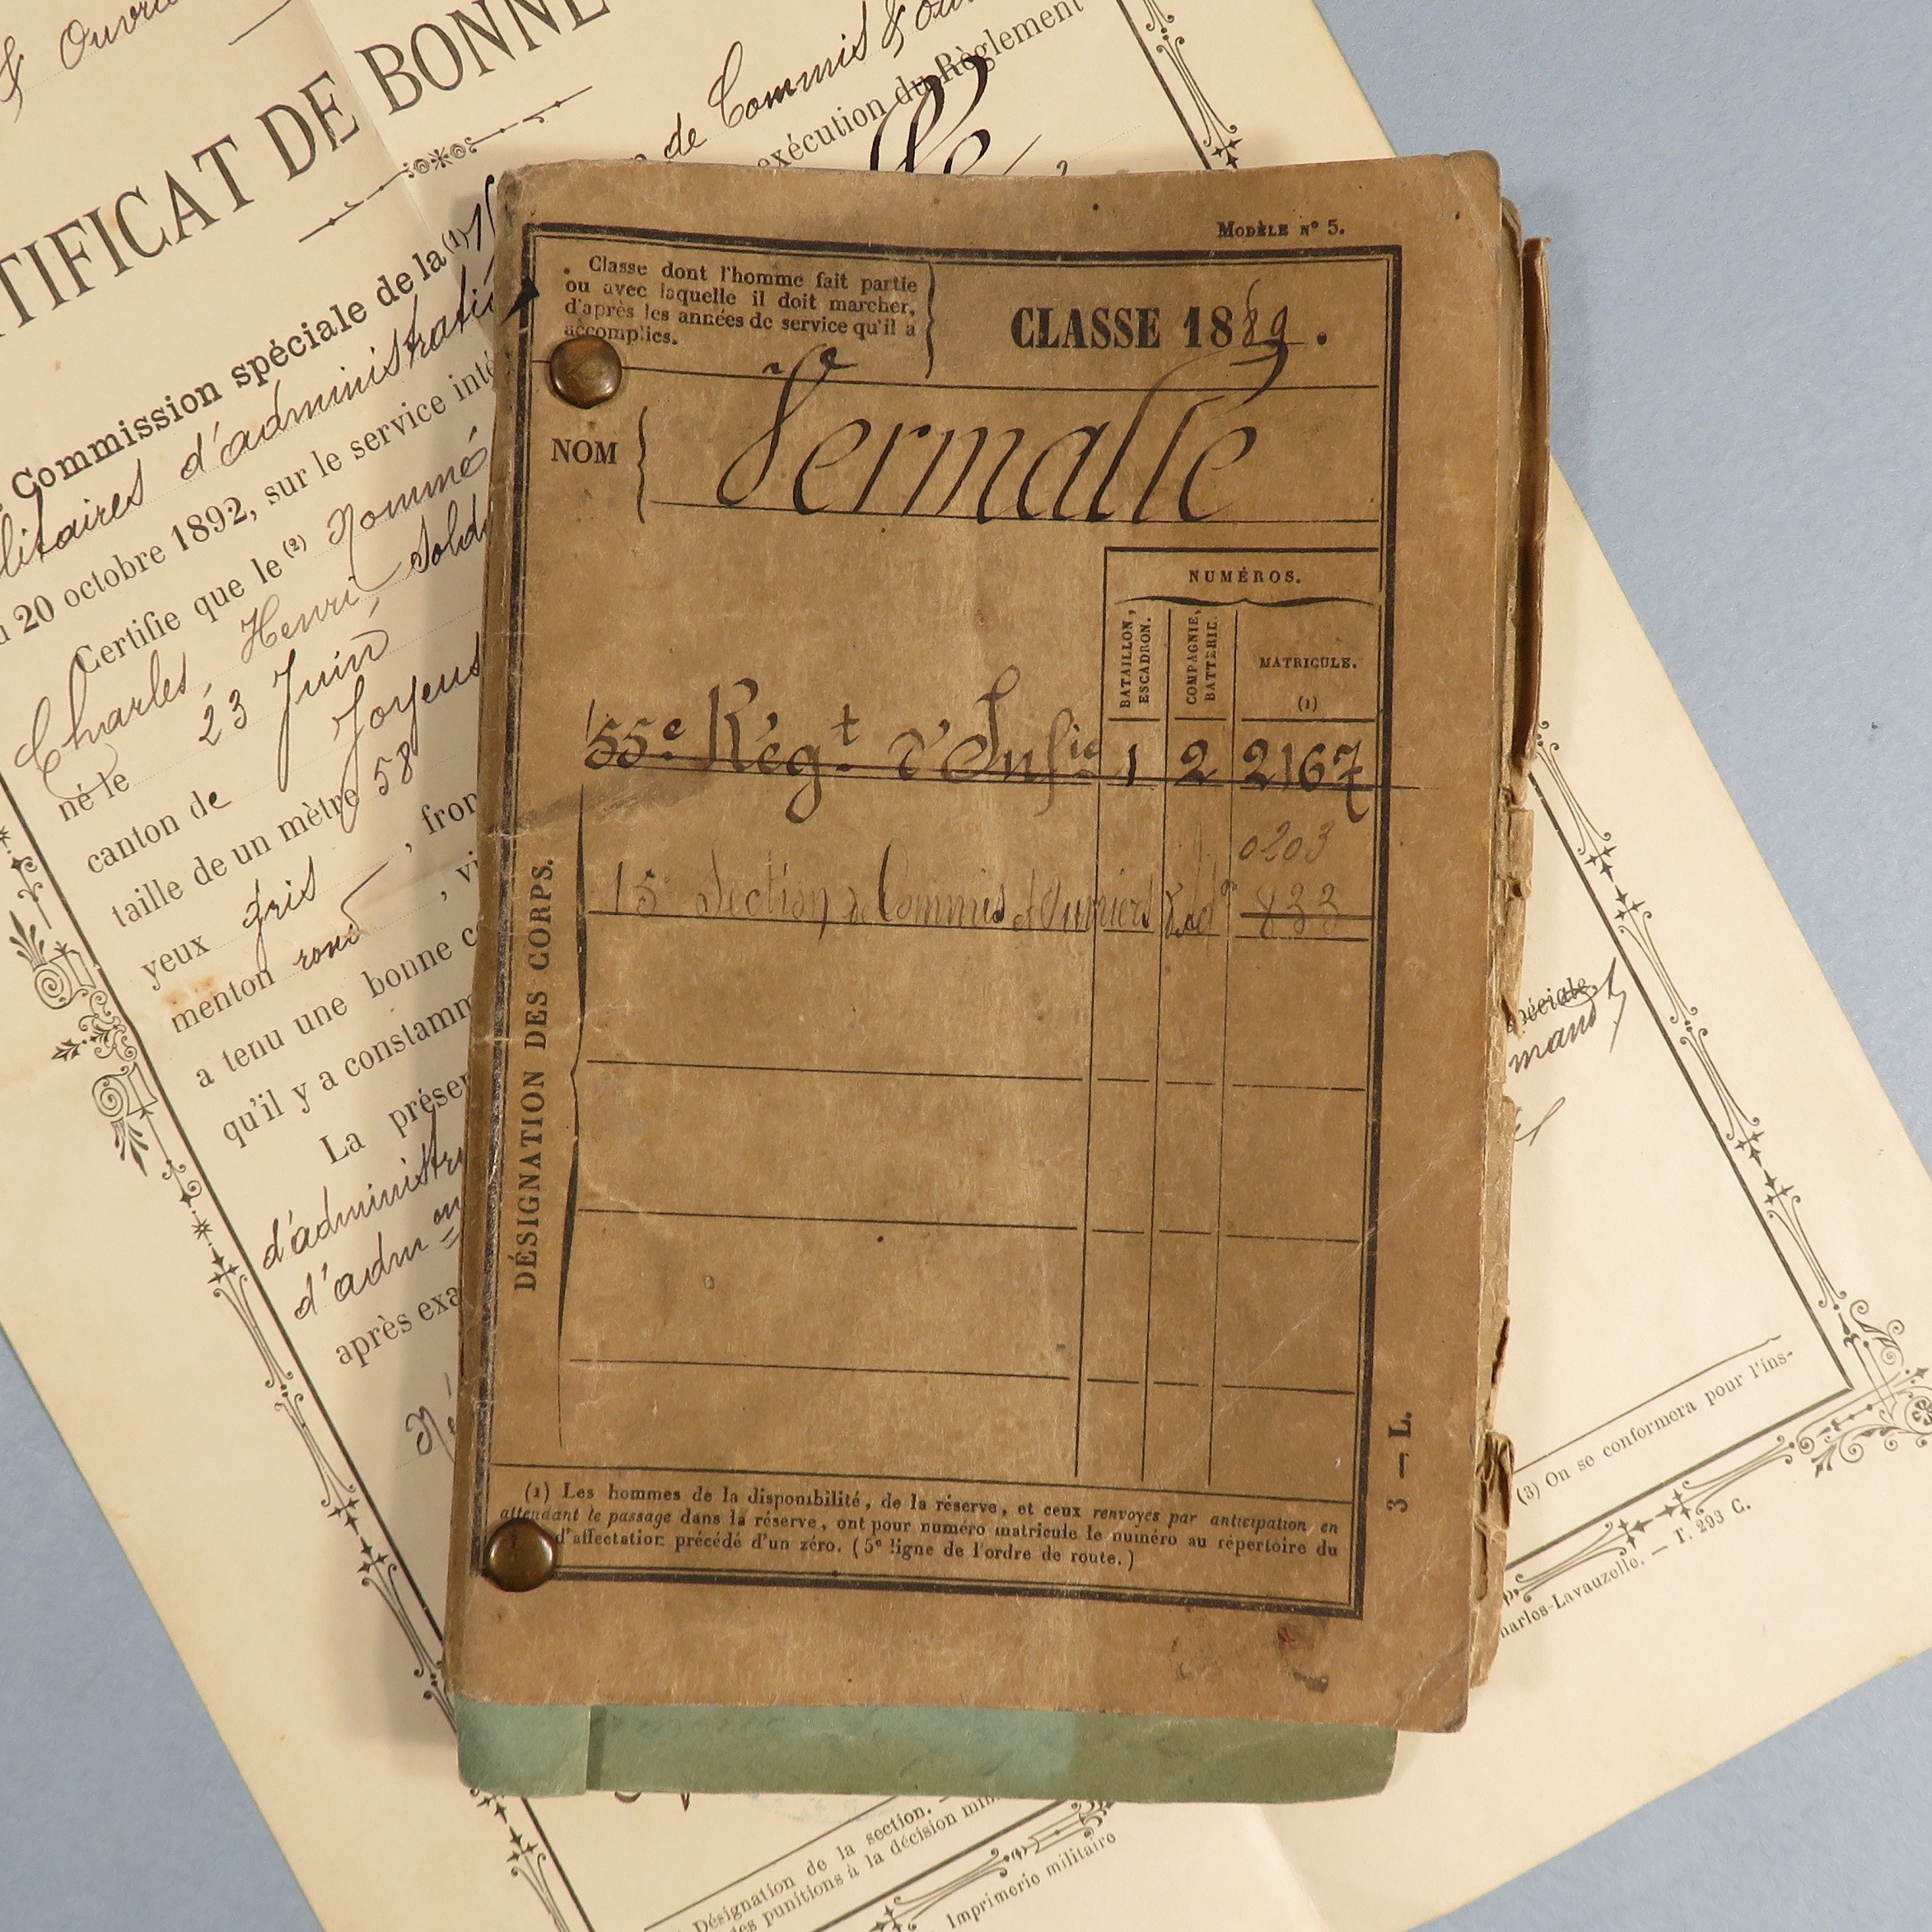 Modèle n° 5.
Classe dont l'homme fait partie
ou avec laquelle il doit marcher,
d'après les années de service qu'il a
accomplies.
CLASSE 1889.
NOM
Vermalle
NUMÉROS.
BATAILLON,
ESCADRON.
COMPAGNIE,
BATTERIE.
MATRICULE.
(1)
DÉSIGNATION DES CORPS.
55e Régt d'Infie 1 2 2167
0203
15 Section de Commis et Ouvriers 833
(1) Les hommes de la disponibilité, de la réserve, et ceux renvoyés par anticipation en
attendant le passage dans la réserve, ont pour numéro matricule le numéro au répertoire du
d'affectation précédé d'un zéro. (5e ligne de l'ordre de route.)
3 — L.
TIFICAT DE BONNE
de Commis &
exécution du Règlement
Commission spéciale de la (1)
litaires d'administratio
20 octobre 1892, sur le service inté
Certifie que le (2) Nommé
Charles, Henri, Sold
né le 23 Juin
canton de Joyeus
taille de un mètre 58
yeux gris, fron
menton rond, vi
a tenu une bonne c
qu'il y a constamm
La présen
d'administr
d'admon
après exa
péciale,
mand
(3) On se conformera pour l'ins-
harles-Lavauzelle. — T. 293 C.
Désignation de la section.
des punitions à la décision min
Imprimerie militaire